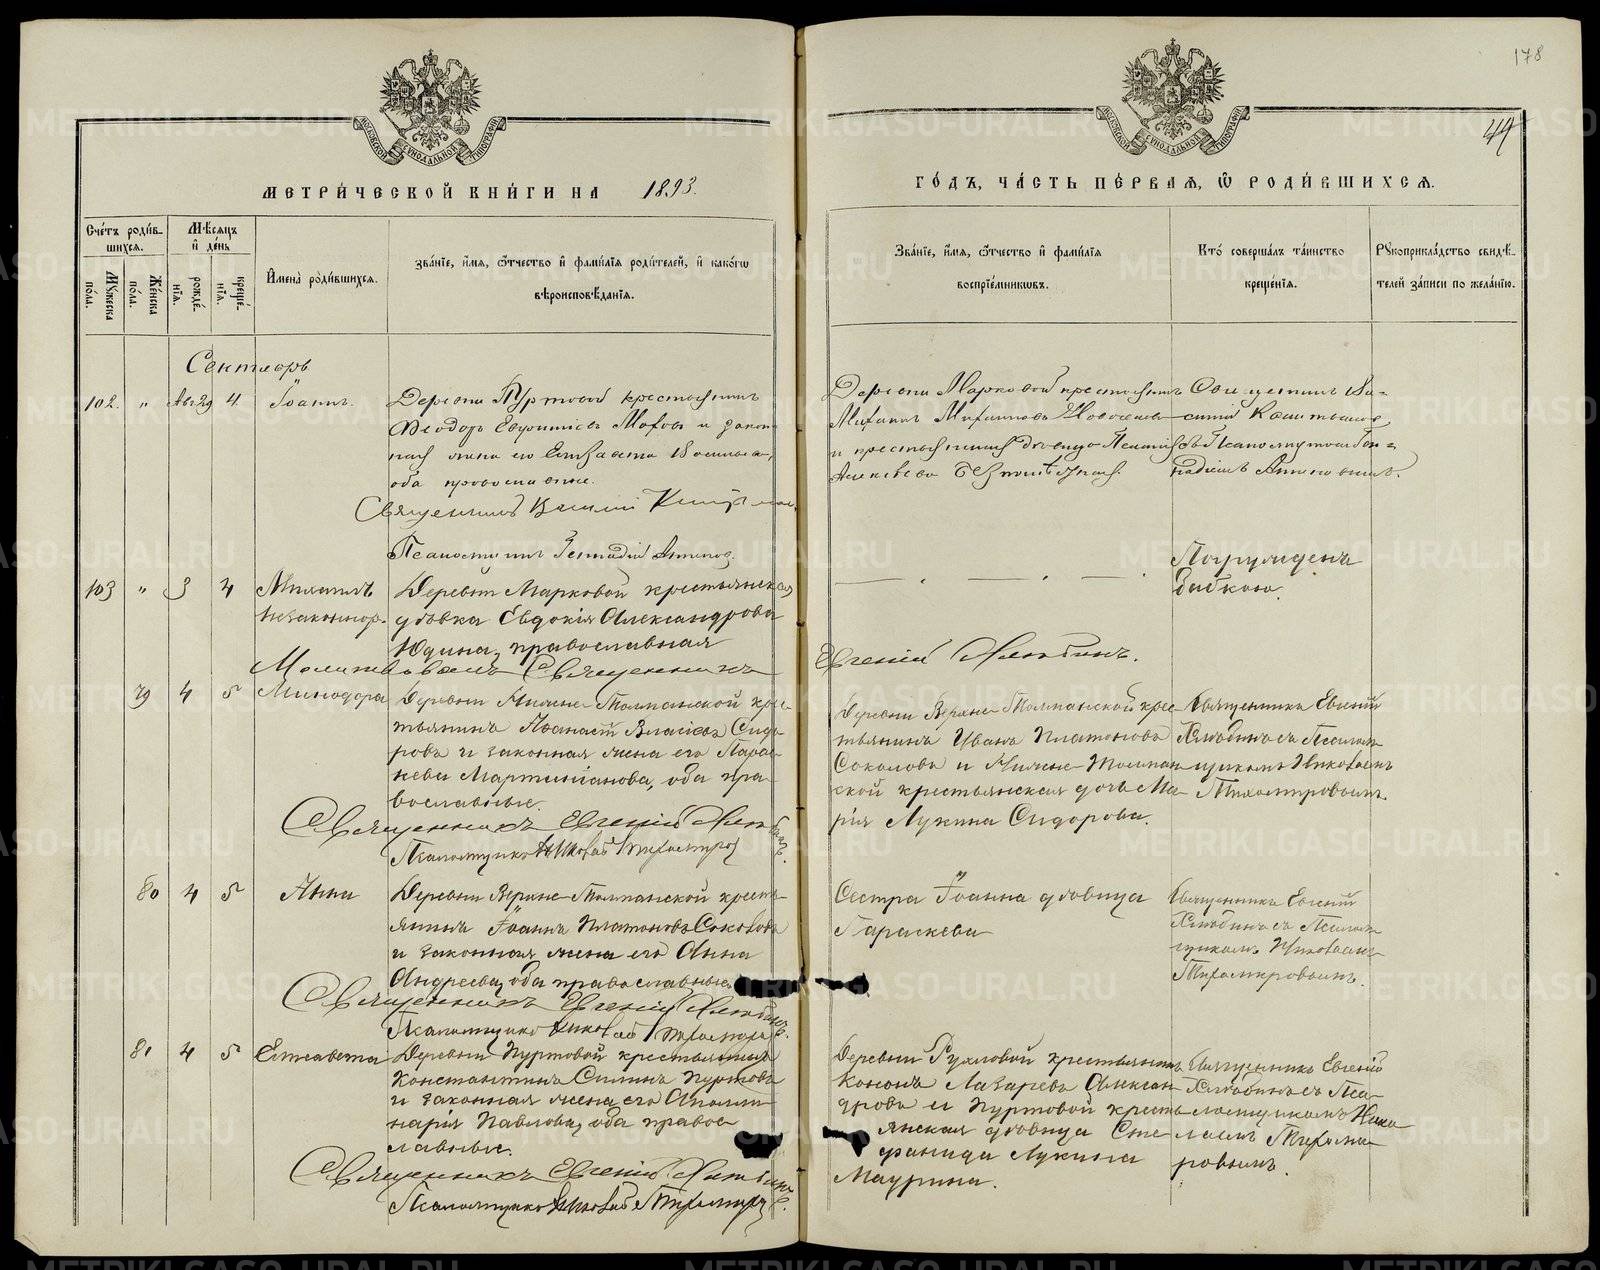 178
44
МОСКОВСКОЙ СѴНОДАЛЬНОЙ ТИПОГРАФІИ
МОСКОВСКОЙ СѴНОДАЛЬНОЙ ТИПОГРАФІИ
МЕТРИ́ЧЕСКОЙ КНИ́ГИ НА 1893.
ГО́ДЪ, ЧА́СТЬ ПЕ́РВАЯ, Ѡ РОДИ́ВШИХСЯ.
Сче́тъ роди́в-
шихся.
Мѣ́сяцъ
и̑ де́нь
Мꙋ́жеска по́ла.
Же́нска по́ла.
рожде́-
нїя.
креще́-
нїя.
И̑мена̀ роди́вшихся.
Зва́нїе, и̑́мя, ѻ̑́тчество и̑ фами́лїя роди́телей, и̑ како́гѡ
вѣроисповѣ́данїя.
Зва́нїе, и̑́мя, ѻ̑́тчество и̑ фами́лїя
воспрїе́мникѡвъ.
Кто́ соверша́лъ та́инство
креще́нїя.
Рꙋкоприкла́дство свидѣ́-
телей за́писи по жела́нїю.
Сентябрь
102. " Авг 29 4. Іоаннъ.
Деревни Пуртовой крестьянинъ
Ѳеодоръ
и закон-
ная жена его Елизавета
оба православные.
Священникъ Василій
Псаломщикъ Геннадій
Деревни Марковой крестьянинъ
Михаилъ
и крестьянская
Священникъ Ва-
силій
103 " 3 4 Михаилъ
незаконнор.
Деревни Марковой крестьянская
дѣвка Евдокія Александрова
Юдина, православная
Молитвовалъ Священникъ
Евгеній Хлябинъ.
Погруженъ
бабкою.
79 4 5 Минодора
Деревни Нижне-Толпанской крес-
тьянинъ Аѳанасій Власіевъ Сидо-
ровъ и законная жена его Парас-
кева Мартиніанова, оба пра-
вославные.
Священникъ Евгеній Хлябинъ.
Псаломщикъ Николай Тихомировъ
Деревни Верхне-Толпанской крес-
тьянинъ Иванъ Платоновъ
Соколовъ и Нижне-Толпан-
ской крестьянская дочь Ма-
рія Лукина Сидорова.
Священникъ Евгеній
Хлябинъ съ Псалом-
щикомъ Николаемъ
Тихомировымъ.
80 4 5 Анна
Деревни Верхне-Толпанской кресть-
янинъ Іоаннъ Платоновъ Соколовъ
и законная жена его Анна
Андреева, оба православные.
Священникъ Евгеній Хлябинъ.
Псаломщикъ Николай Тихомировъ
Сестра Іоанна дѣвица
Параскева
Священникъ Евгеній
Хлябинъ съ Псалом-
щикомъ Николаемъ
Тихомировымъ.
81 4 5 Елисавета
Деревни Пуртовой крестьянинъ
Константинъ Силинъ Пуртовъ
и законная жена его Аполли-
нарія Павлова, оба правос-
лавные.
Священникъ Евгеній Хлябинъ.
Псаломщикъ Николай Тихомировъ
Деревни Рухловой крестьянинъ
Кононъ Лазаревъ Александ-
дровъ и Пуртовой кресть-
янская дѣвица Сте-
фанида Лукина
Маурина.
Священникъ Евгеній
Хлябинъ съ Пса-
ломщикомъ Нико-
лаемъ Тихоми-
ровымъ.
METRIKI.GASO-URAL.RU